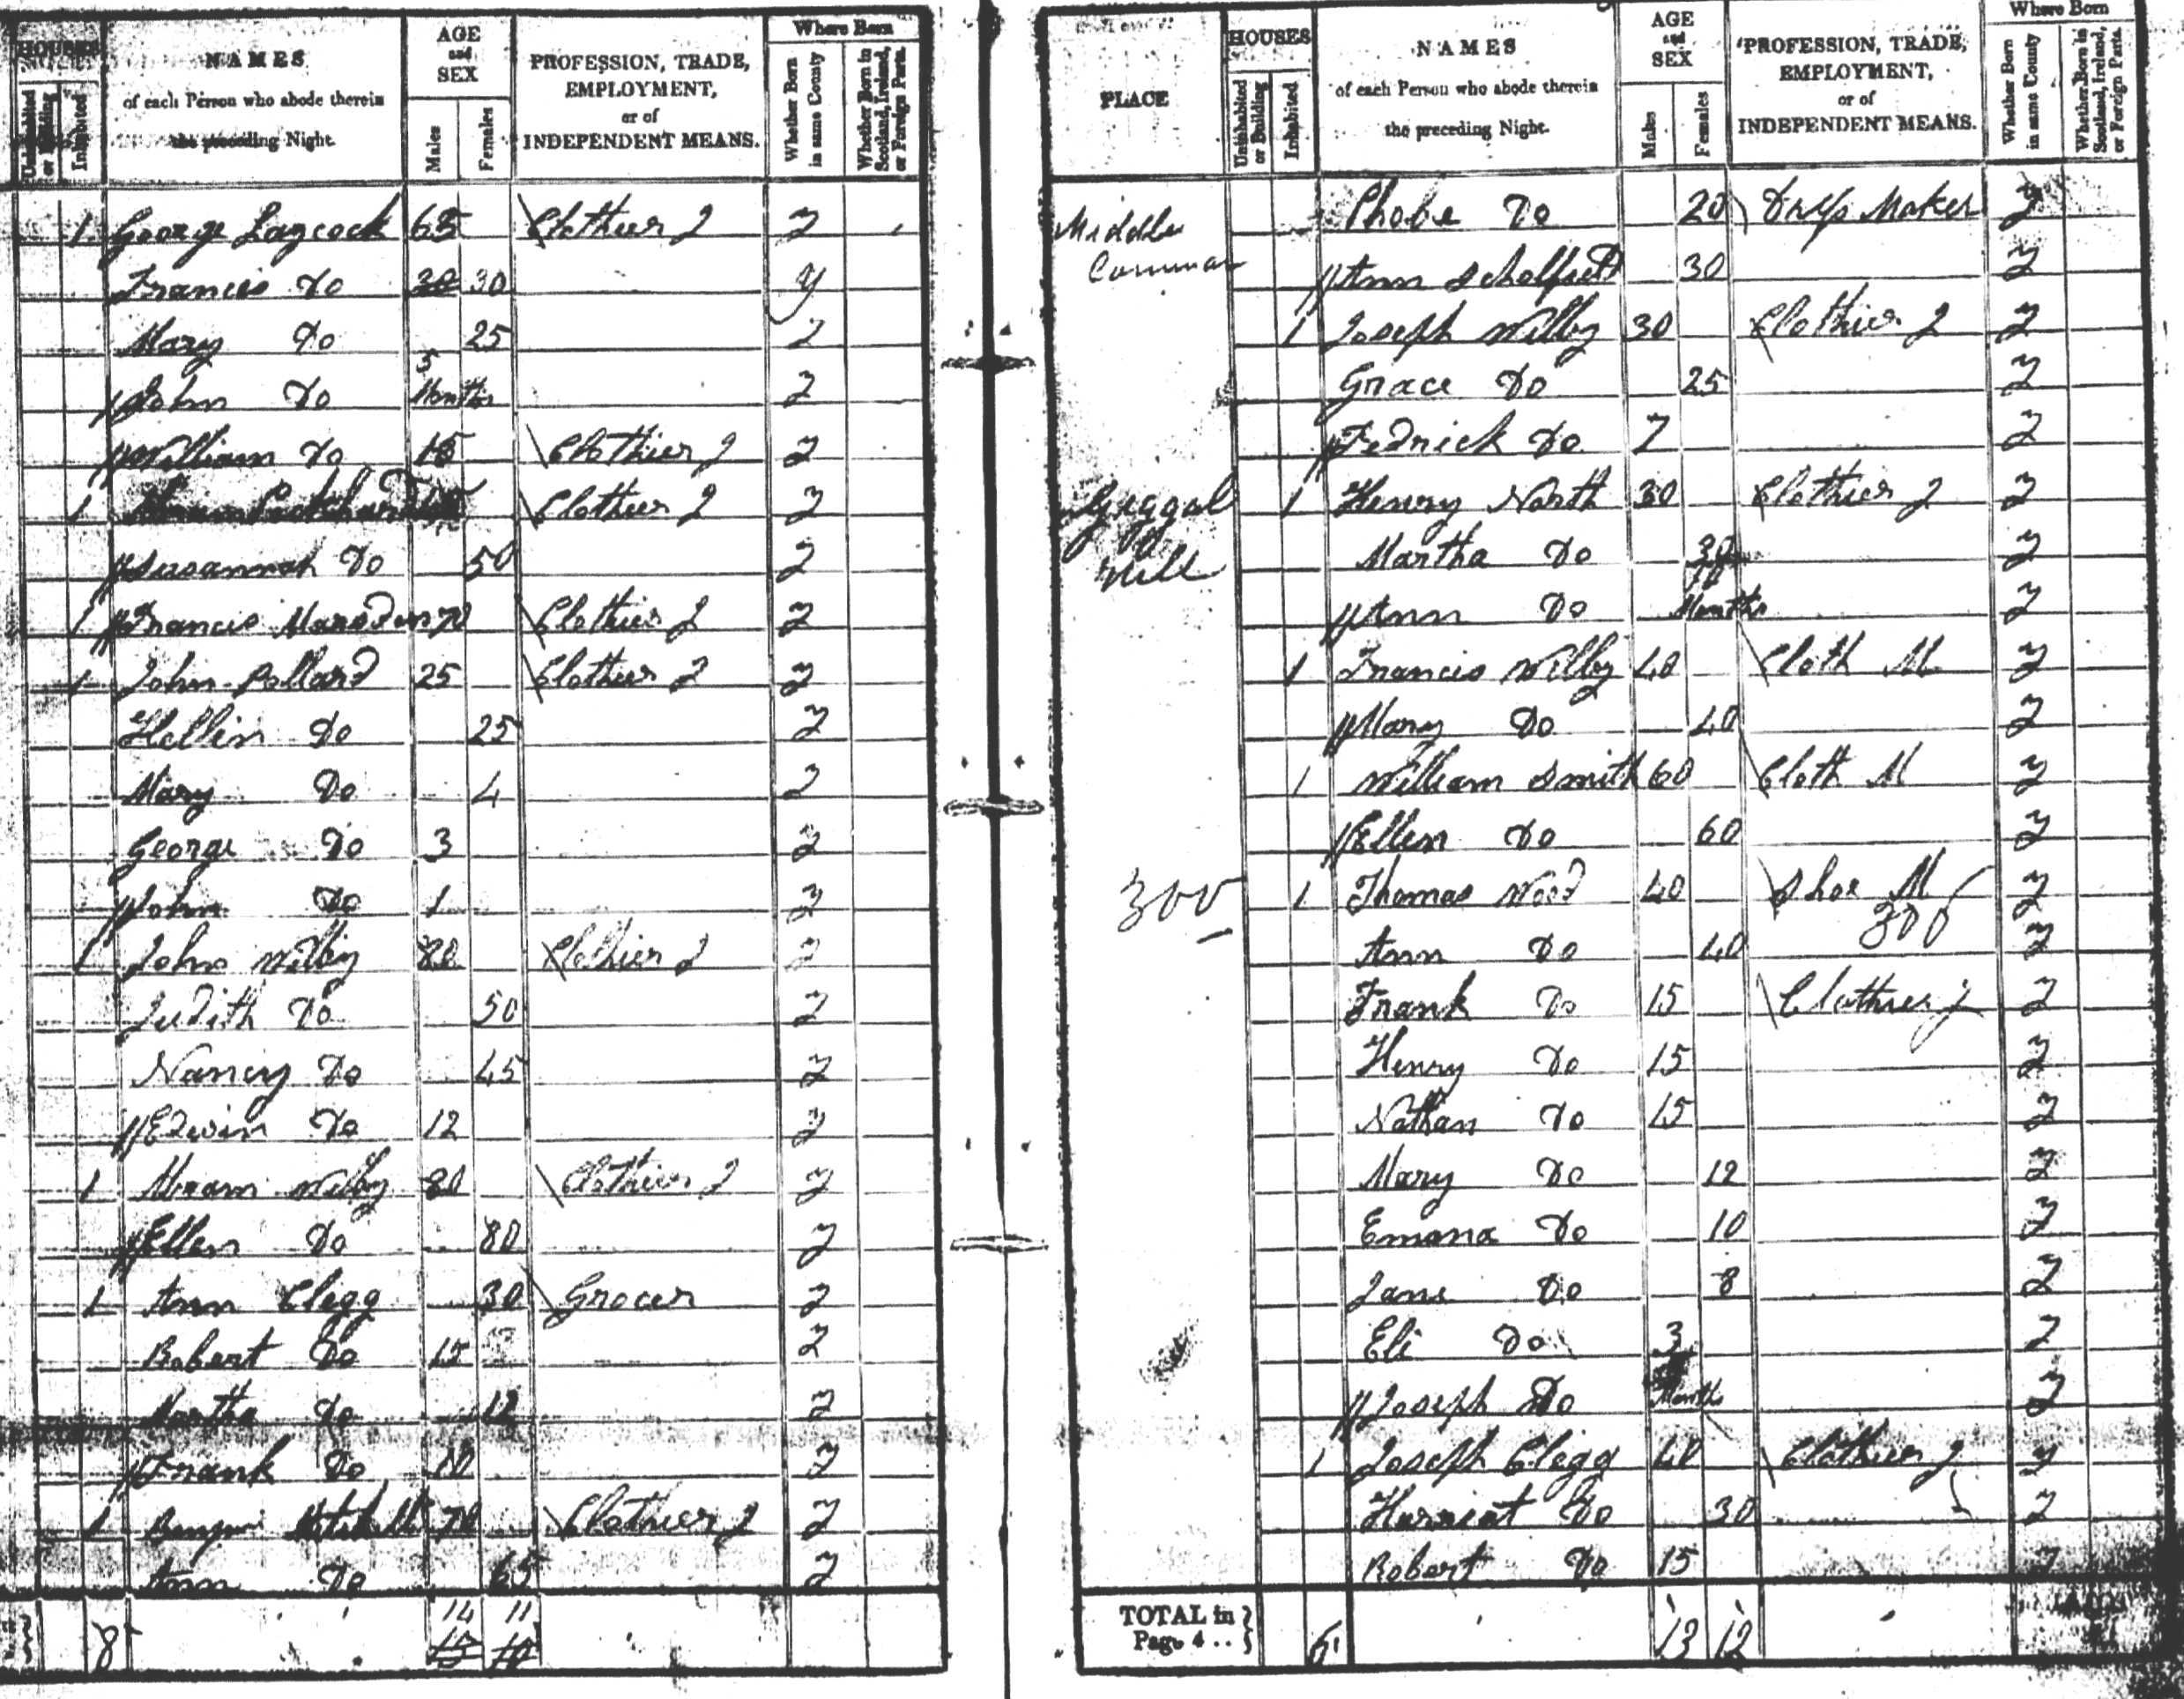 HOUSES
Uninhabited or Building
Inhabited
NAMES
of each Person who abode therein
the preceding Night.
AGE and SEX
Males
Females
PROFESSION, TRADE, EMPLOYMENT, or of INDEPENDENT MEANS.
Where Born
Whether Born in same County
Whether Born in Scotland, Ireland, or Foreign Parts.
1 George Laycock 65 Clothier J y
Francis Do 30 30 y
Mary Do 25 y
John Do 5 Months y
William Do 15 Clothier J y
1 Clothier J y
Susannah Do 50 y
1 Francis Marsden 70 Clothier J y
1 John Pollard 25 Clothier J y
Hellin Do 25 y
Mary Do 4 y
George Do 3 y
John Do 1 y
1 John Wilby 80 Clothier J y
Judith Do 50 y
Nancy Do 45 y
Edwin Do 12 y
1 Abram Wilby 80 Clothier J y
Ellen Do 80 y
1 Ann Clegg 30 Grocer y
Robert Do 15 y
Martha Do 12 y
Frank Do 10 y
1 Mitchell 70 Clothier J y
Ann Do 65 y
8 14 11
15 10
PLACE
HOUSES
Uninhabited or Building
Inhabited
NAMES
of each Person who abode therein
the preceding Night.
AGE and SEX
Males
Females
PROFESSION, TRADE, EMPLOYMENT, or of INDEPENDENT MEANS.
Where Born
Whether Born in same County
Whether Born in Scotland, Ireland, or Foreign Parts.
Middle Common Phobe Do 20 Dress Maker y
Ann 30 y
1 Joseph Wilby 30 Clothier J y
Grace Do 25 y
Fedrick Do 7 y
Gaggal Hill 1 Henry North 30 Clothier J y
Martha Do 30 y
Ann Do 10 Months y
1 Francis Wilby 40 Cloth M y
Mary Do 40 y
1 William Smith 60 Cloth M y
Ellen Do 60 y
300 1 Thomas Wood 40 Shoe M y
300
Ann Do 40 y
Frank Do 15 Clothier J y
Henry Do 15 y
Nathan Do 15 y
Mary Do 12 y
Emma Do 10 y
Jane Do 8 y
Eli Do 3 y
Joseph Do Month y
1 Joseph Clegg 40 Clothier J y
Harriot Do 30 y
Robert Do 15 y
TOTAL in Page 4 .. } 6 13 12